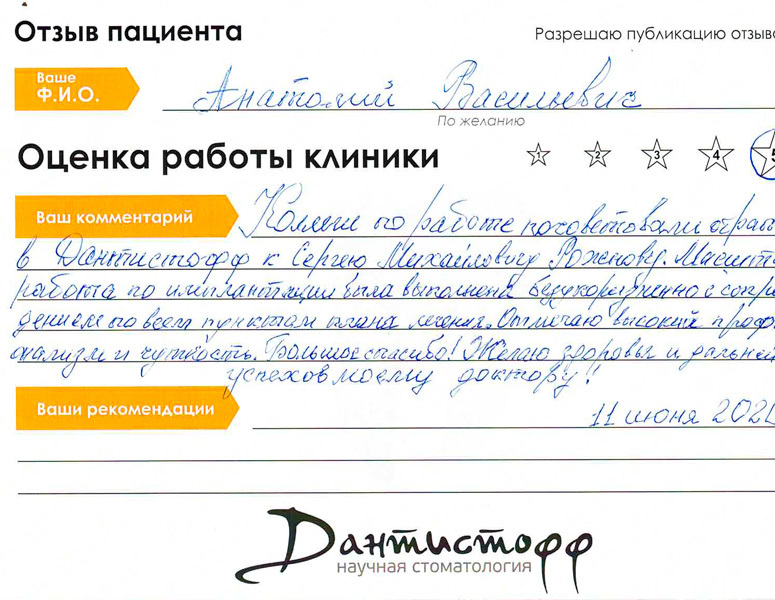 Отзыв пациента
Разрешаю публикацию отзыва
Ваше
Ф.И.О.
Анатолий Васильевич
По желанию
Оценка работы клиники
1 2 3 4 5
Ваш комментарий
Коллеги по работе посоветовали обрат
в Дантистофф к Сергею Михайловичу Рожнову. Масшт
работа по имплантации была выполнена безукоризненно с сопр
дением по всем пунктам плана лечения. Отмечаю высокий проф
онализм и чуткость. Большое спасибо! Желаю здоровья и дальней
успехов моему доктору!!
Ваши рекомендации
11 июня 202
Дантистофф
научная стоматология